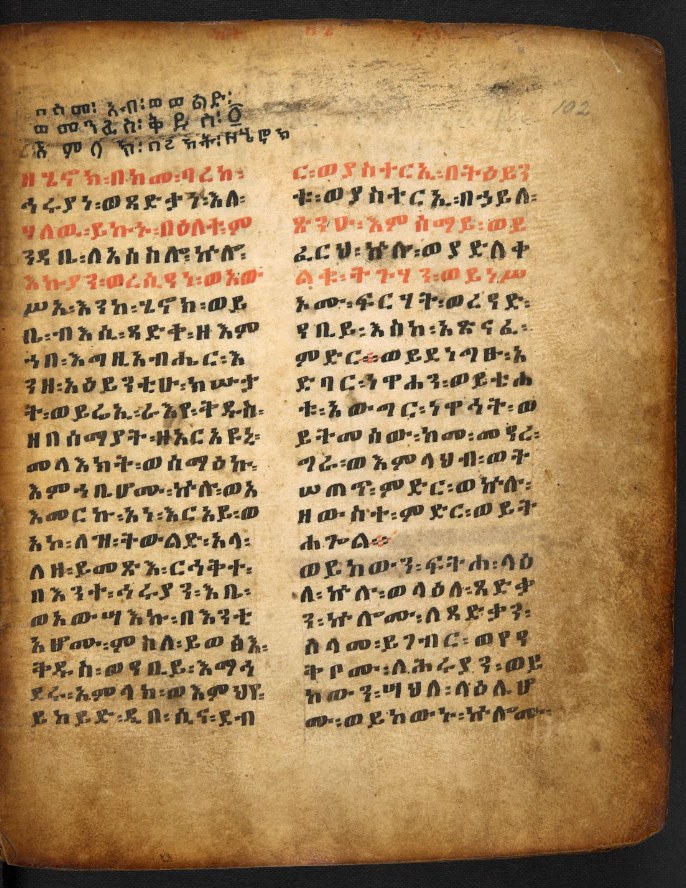 በስመ፡ አብ፡ ወወልድ፡
ወመንፈስ፡ ቅዱስ፡ ፩
አምላክ፡ በረከት፡ ዘሄኖክ
ዘሄኖክ፡በከመ፡ባረከ፡
ኅሩያነ፡ወጻድቃን፡እለ፡
ሃለዉ፡ይኩኑ፡በዕለተ፡ም
ንዳቤ፡ለአሰስሎ፡ኵሎ፡
እኩያን፡ወረሲዓነ፡ወአው
ሥአ፡እንከ፡ሄኖክ፡ወይ
ቤ፡ብእሲ፡ጻድቅ፡ዘእም
ኀበ፡እግዚአብሔር፡እ
ንዘ፡አዕይንቲሁ፡ክሡታ
ት፡ወይሬኢ፡ራእየ፡ቅዱስ፡
ዘበሰማያት፡ዘአርአዩኒ፡
መላእክት፡ወሰማዕኩ፡
እምኀቤሆሙ፡ኵሎ፡ወአ
እመርኩ፡አነ፡እርአይ፡ወ
አኮ፡ለዝ፡ትውልድ፡አላ፡
ለዘ፡ይመጽእ፡ርኅቅተ፡
በእንተ፡ኅሩያን፡እቤ፡
ወአውሣእኩ፡በእንቲ
አሆሙ፡ምስለ፡ይወፅእ፡
ቅዱስ፡ወዓቢይ፡እማኅ
ደሩ፡አምላከ፡ወእምህየ፡
ይከይድ፡ዲበ፡ሲና፡ደብ
ር፡ወያስተርኢ፡በትዕይን
ቱ፡ወያስተርኢ፡በኃይለ፡
ጽንዑ፡እምሰማይ፡ወይ
ፈርህ፡ኵሉ፡ወያድለቀ
ልቁ፡ትጉሃን፡ወይነሥ
አሙ፡ፍርሃት፡ወረዓድ፡
ዓቢይ፡እስከ፡አጽናፈ፡
ምድር።ወይደነግፁ፡አ
ድባር፡ነዋኀን፡ወይቴሐ
ቱ፡አውግር፡ነዋኅት፡ወ
ይትመሰው፡ከመ፡መዓረ፡
ግራ፡ወእምላህብ፡ወት
ሠጠጥ፡ምድር፡ወኵሉ፡
ዘውስተ፡ምድር፡ወይት
ሐጐል።
ወይከውን፡ፍትሐ፡ላዕ
ለ፡ኵሉ፡ወላዕለ፡ጻድቃ
ን፡ኵሎሙ፡ለጻድቃን፡
ሰላመ፡ይገብር፡ወየዓ
ቅቦሙ፡ለኅሩያን፡ወይ
ከውን፡ሣህለ፡ላዕሌሆ
ሙ፡ወይከውኑ፡ኵሎሙ፡
102